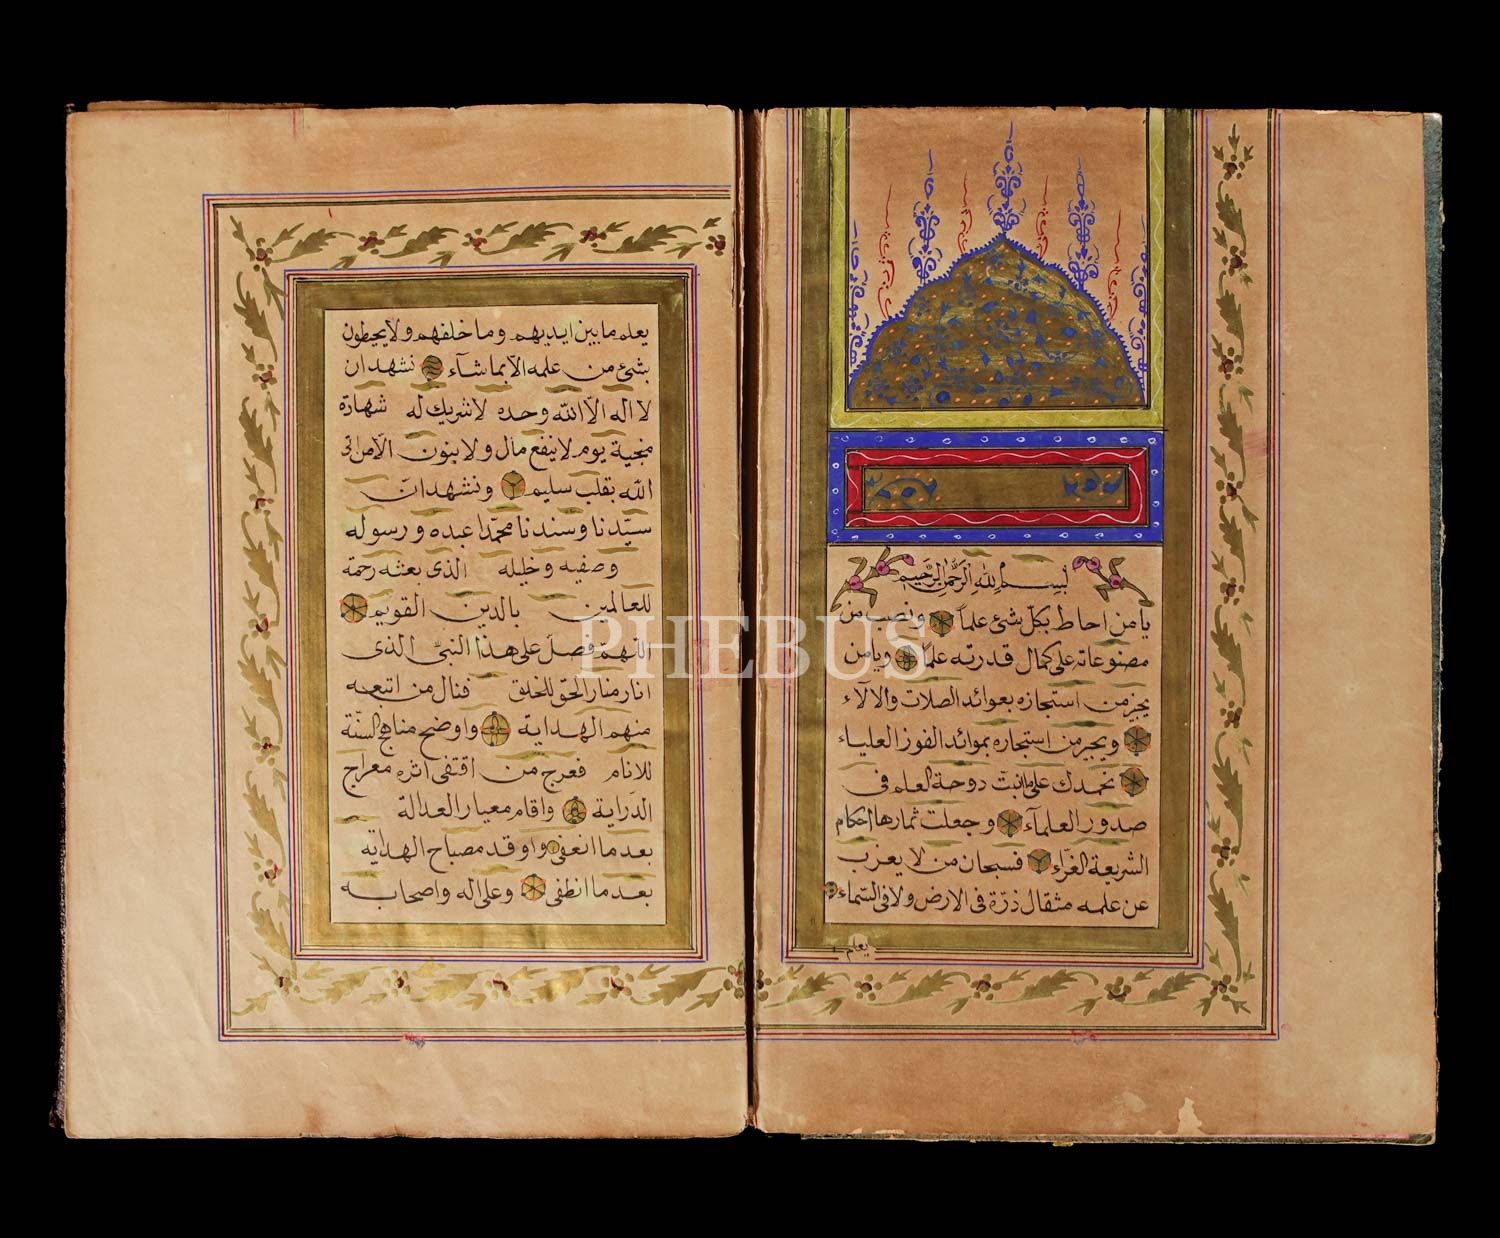 بسم الله الرحمن الرحيم
يا من احاط بكل شئ علماً ونصب من
مصنوعاته على كمال قدرته علماً ويا من
يجيز من استجازه بعوائد الصلات والالاء
ويجير من استجاره بموائد الفوز العلياء
نحمدك على ما انبت دوحة العلم فى
صدور العلمآء وجعلت ثمارها احكام
الشريعة الغرّاء فسبحان من لا يعزب
عن علمه مثقال ذرّة فى الارض ولا فى السّماء
يعلم
يعلم ما بين ايديهم وما خلفهم ولا يحيطون
بشئ من علمه الا بما شآء نشهد ان
لا اله الّا الله وحده لا شريك له شهادة
منجية يوم لا ينفع مال ولا بنون الّا من اتى
الله بقلب سليم ونشهد انّ
سيّدنا وسندنا محمّدا عبده ورسوله
وصفيه وخليله الذى بعثه رحمة
للعالمين بالدين القويم
اللّهم فصلّ على هذا النبىّ الذى
انار منار الحق للخلق فنال من اتبعه
منهم الهداية واوضح مناهج السنّة
للانام فعرج من اقتفى اثره معراج
الدّراية واقام معيار العدالة
بعد ما انعفى واوقد مصباح الهداية
بعد ما انطفى وعلى اله واصحابه
PHEBUS